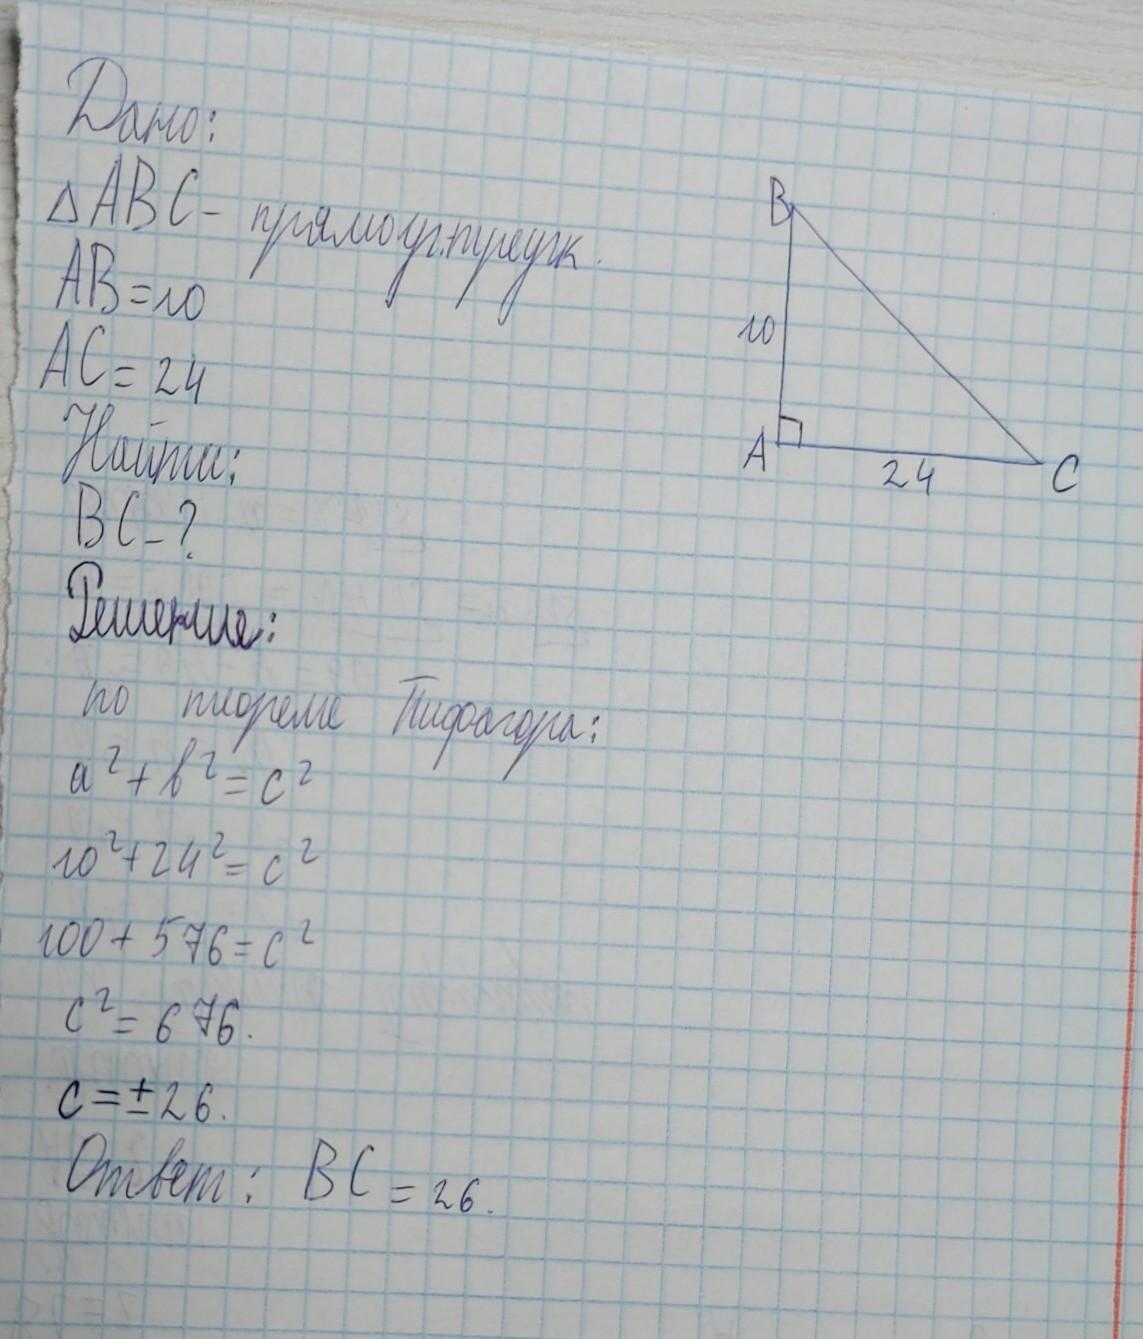 Дано:
△ABC - прямоуг.треуг.
AB=10
AC=24
Найти:
BC-?
Решение:
по теореме Пифагора:
a²+b²=c²
10²+24²=c²
100+576=c²
c²=676.
c=±26.
Ответ: BC=26.
B
10
A
24
C